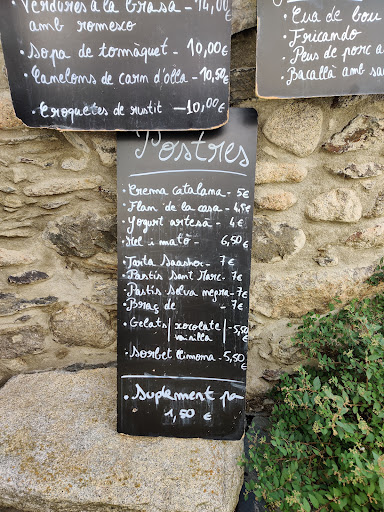 Verdures a la brasa - 14,00
amb romesco €
·Sopa de tomàquet - 10,00€
·Canelons de carn d'olla - 10,50€
·Croquetes de rustit - 10,00€
·Cua de bou
·Fricando
·Peus de porc a
·Bacallà amb sa
Postres
·Crema catalana - 5€
·Flam de la casa - 4,5€
·Yogurt artesà - 4€
·Mel i mató - 6,50€
·Tarta - 7€
·Pastís Sant Marc - 7€
·Pastís Selva negra - 7€
·Braç de - 7€
·Gelats xocolate - 5,50
vainilla €
·Sorbet llimona - 5,50€
·Suplement pa
1,50 €